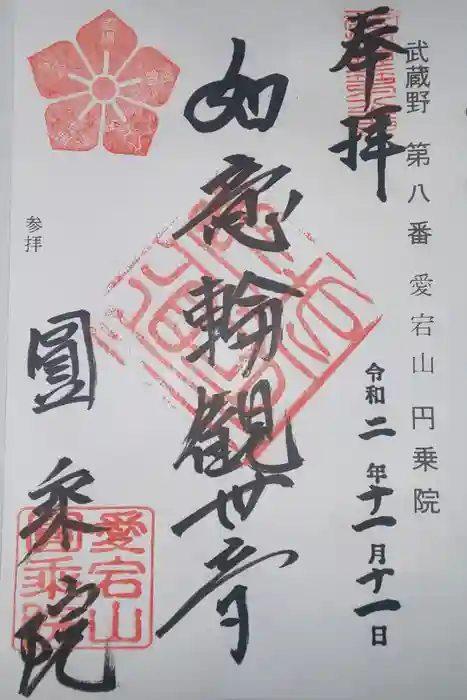 武蔵野 第八番 愛宕山 円乗院
奉拝
令和二年十一月十一日
如意輪観世音
参拝
圓乗院
愛宕山
圓乗院